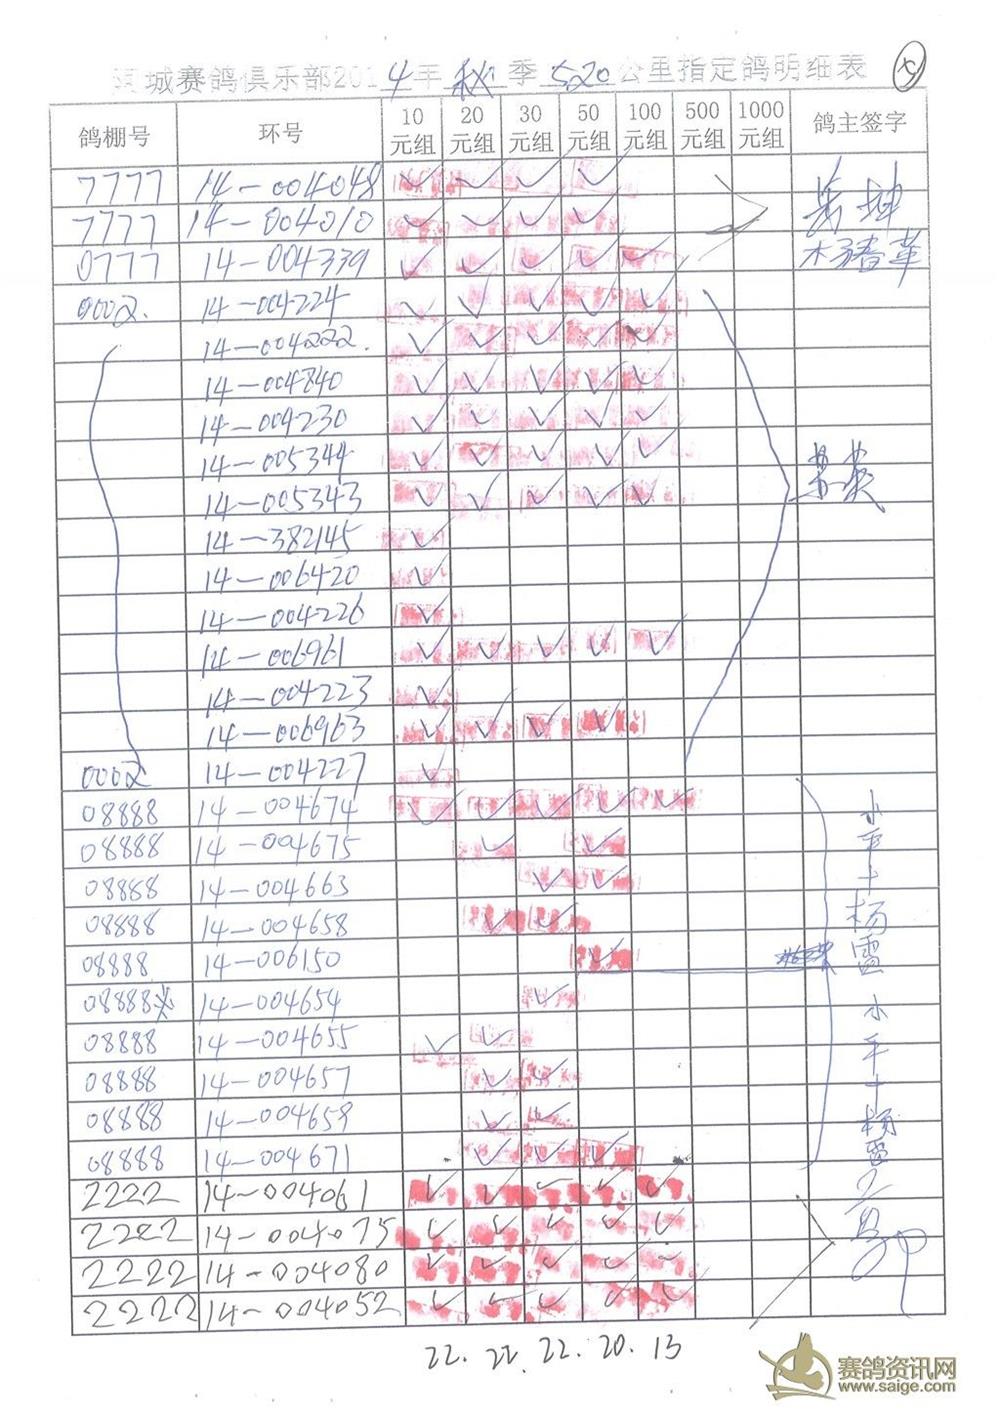 城赛鸽俱乐部2014年秋季520公里指定鸽明细表
鸽棚号 环号 10元组 20元组 30元组 50元组 100元组 500元组 1000元组 鸽主签字
7777 14-004048 ✓ ✓ ✓ ✓
7777 14-004010 ✓ ✓ ✓ ✓
0777 14-004339 ✓ ✓ ✓ ✓ ✓ 杨春革
0002. 14-004224 ✓ ✓ ✓ ✓ ✓
14-004222. ✓ ✓ ✓ ✓ ✓
14-004840 ✓ ✓ ✓ ✓ ✓
14-004230 ✓ ✓ ✓ ✓ ✓
14-005344 ✓ ✓ ✓ ✓ ✓
14-005343 ✓ ✓ ✓ ✓ ✓
14-382145 ✓
14-006420 ✓
14-004226 ✓
14-006961 ✓ ✓ ✓ ✓ ✓
14-004223 ✓
14-006963 ✓ ✓ ✓ ✓
0002 14-004227 ✓
08888 14-004674 ✓ ✓ ✓ ✓ ✓ 水平+杨雷
08888 14-004675 ✓ ✓
08888 14-004663 ✓ ✓
08888 14-004658 ✓ ✓
08888 14-006150 ✓
08888 14-004654 ✓ 水平+杨雷
08888 14-004655 ✓ ✓
08888 14-004657 ✓ ✓
08888 14-004659 ✓ ✓
08888 14-004671 ✓ ✓ ✓
2222 14-004061 ✓ ✓ ✓ ✓ ✓
2222 14-004075 ✓ ✓ ✓ ✓ ✓
2222 14-004080 ✓ ✓ ✓ ✓ ✓
2222 14-004052 ✓ ✓ ✓ ✓ ✓
22. 22. 22. 20. 13
赛鸽资讯网
www.saige.com